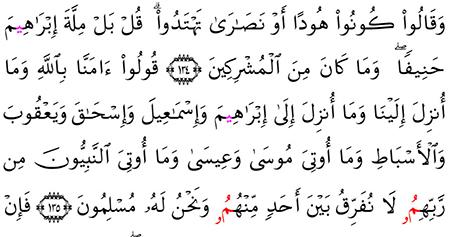 وَقَالُوا۟ كُونُوا۟ هُودًا أَوْ نَصَـٰرَىٰ تَهْتَدُوا۟ۗ قُلْ بَلْ مِلَّةَ إِبْرَٰهِيمَ
حَنِيفًاۖ وَمَا كَانَ مِنَ ٱلْمُشْرِكِينَ ﴿١٣٤﴾ قُولُوٓا۟ ءَامَنَّا بِٱللَّهِ وَمَآ
أُنزِلَ إِلَيْنَا وَمَآ أُنزِلَ إِلَىٰٓ إِبْرَٰهِيمَ وَإِسْمَـٰعِيلَ وَإِسْحَـٰقَ وَيَعْقُوبَ
وَٱلْأَسْبَاطِ وَمَآ أُوتِىَ مُوسَىٰ وَعِيسَىٰ وَمَآ أُوتِىَ ٱلنَّبِيُّونَ مِن
رَّبِّهِمُۥ لَا نُفَرِّقُ بَيْنَ أَحَدٍ مِّنْهُمُۥ وَنَحْنُ لَهُۥ مُسْلِمُونَ ﴿١٣٥﴾ فَإِنْ